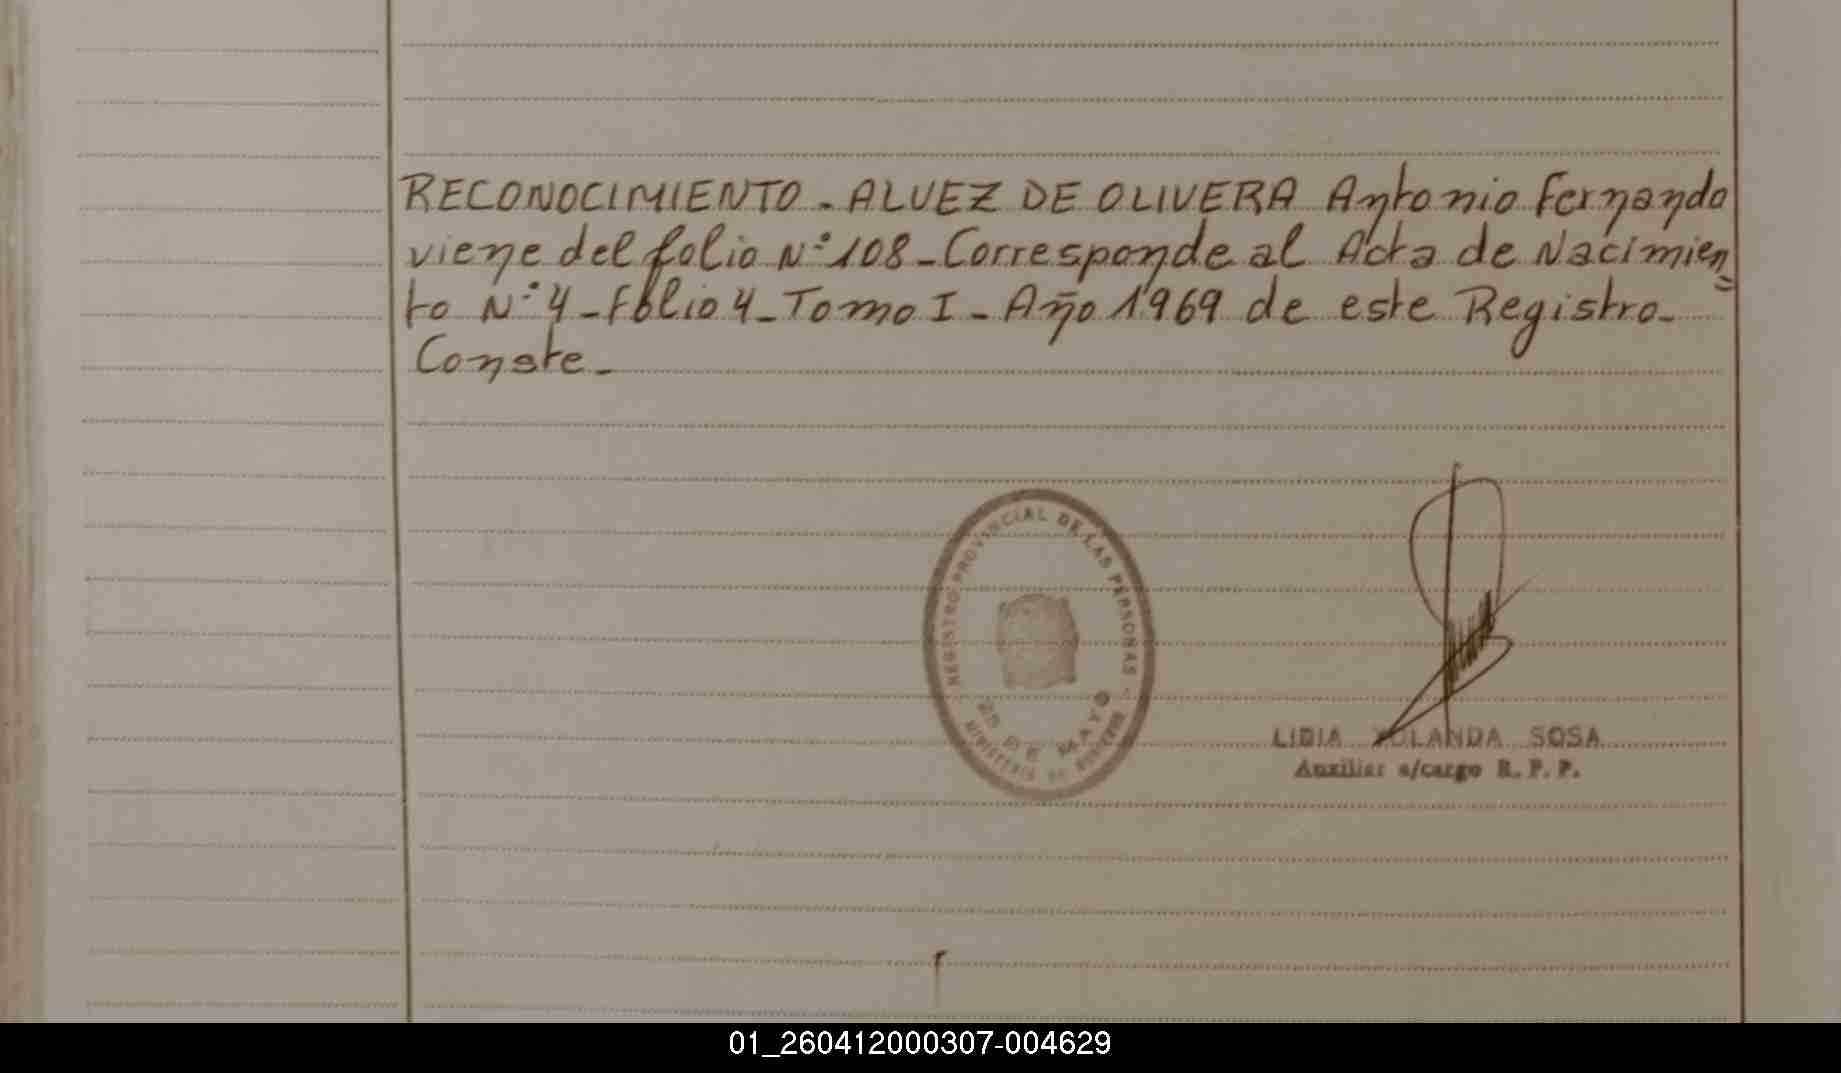 RECONOCIMIENTO. ALVEZ DE OLIVERA Antonio Fernando
viene del folio N° 108 - Corresponde al Acta de Nacimien=
to N° 4 - Folio 4 - Tomo I - Año 1969 de este Registro -
Conste -
REGISTRO PROVINCIAL DE LAS PERSONAS
25 DE MAYO
MINISTERIO DE GOBIERNO
LIDIA YOLANDA SOSA
Auxiliar a/cargo R. P. P.
01_260412000307-004629